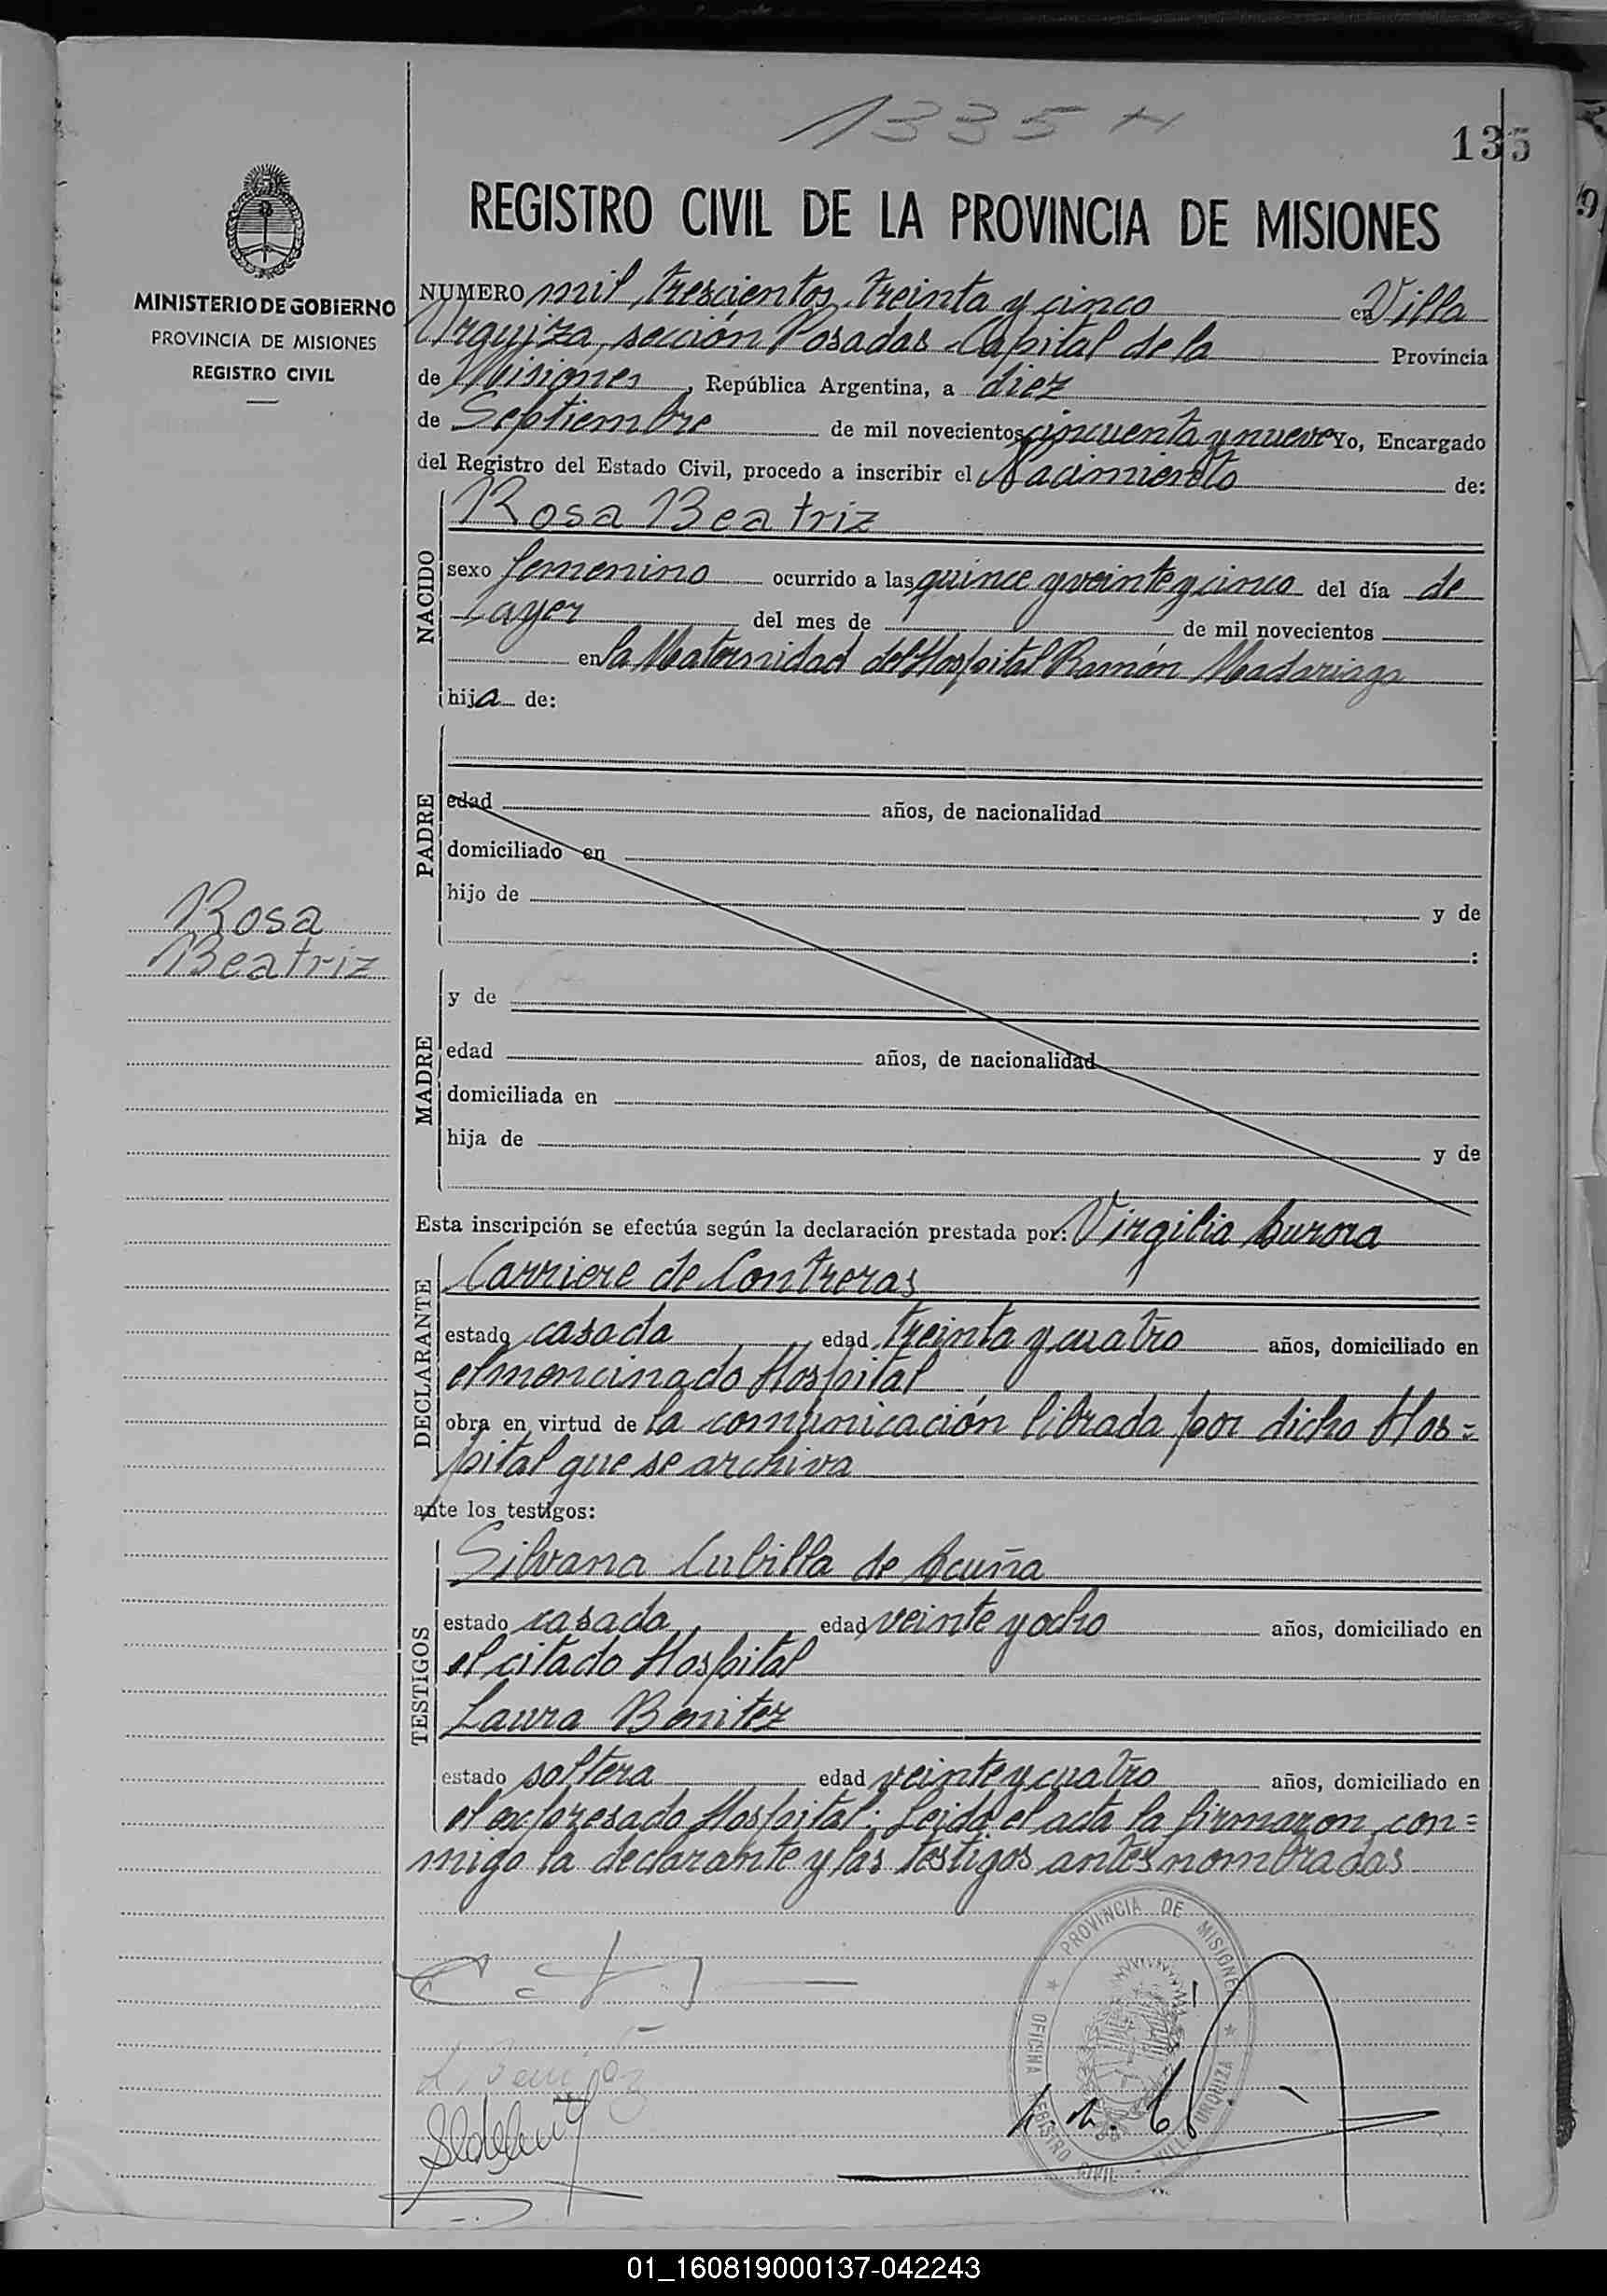 1335
135
REGISTRO CIVIL DE LA PROVINCIA DE MISIONES
MINISTERIO DE GOBIERNO
PROVINCIA DE MISIONES
REGISTRO CIVIL
NUMERO mil, trescientos treinta y cinco en Villa
Urquiza, sección Posadas Capital de la Provincia
de Misiones, República Argentina, a diez
de Septiembre de mil novecientos cincuenta y nueve Yo, Encargado
del Registro del Estado Civil, procedo a inscribir el Nacimiento de:
Rosa Beatriz
NACIDO
sexo femenino ocurrido a las quince y veinte y cinco del día de
ayer del mes de de mil novecientos
en la Maternidad del Hospital Ramón Madariaga
hija de:
PADRE
edad años, de nacionalidad
domiciliado en
hijo de y de
:
Rosa
Beatriz
MADRE
y de
edad años, de nacionalidad
domiciliada en
hija de y de
Esta inscripción se efectúa según la declaración prestada por: Virgilia Aurora
DECLARANTE
Carriere de Contreras
estado casada edad treinta y cuatro años, domiciliado en
el mencinado Hospital
obra en virtud de la comunicación librada por dicho Hos=
pital que se archiva
ante los testigos:
TESTIGOS
Silvana Cubilla de Acuña
estado casada edad veinte y ocho años, domiciliado en
el citado Hospital
Laura Benitez
estado soltera edad veinte y cuatro años, domiciliado en
el expresado Hospital. Leida el acta la firmaron con=
migo la declarante y las testigos antes nombradas
PROVINCIA DE MISIONES
OFICINA REGISTRO CIVIL - VILLA URQUIZA
L. Benitez
01_160819000137-042243